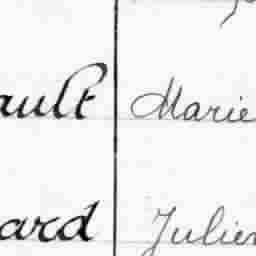 ault Marie
ard Julien